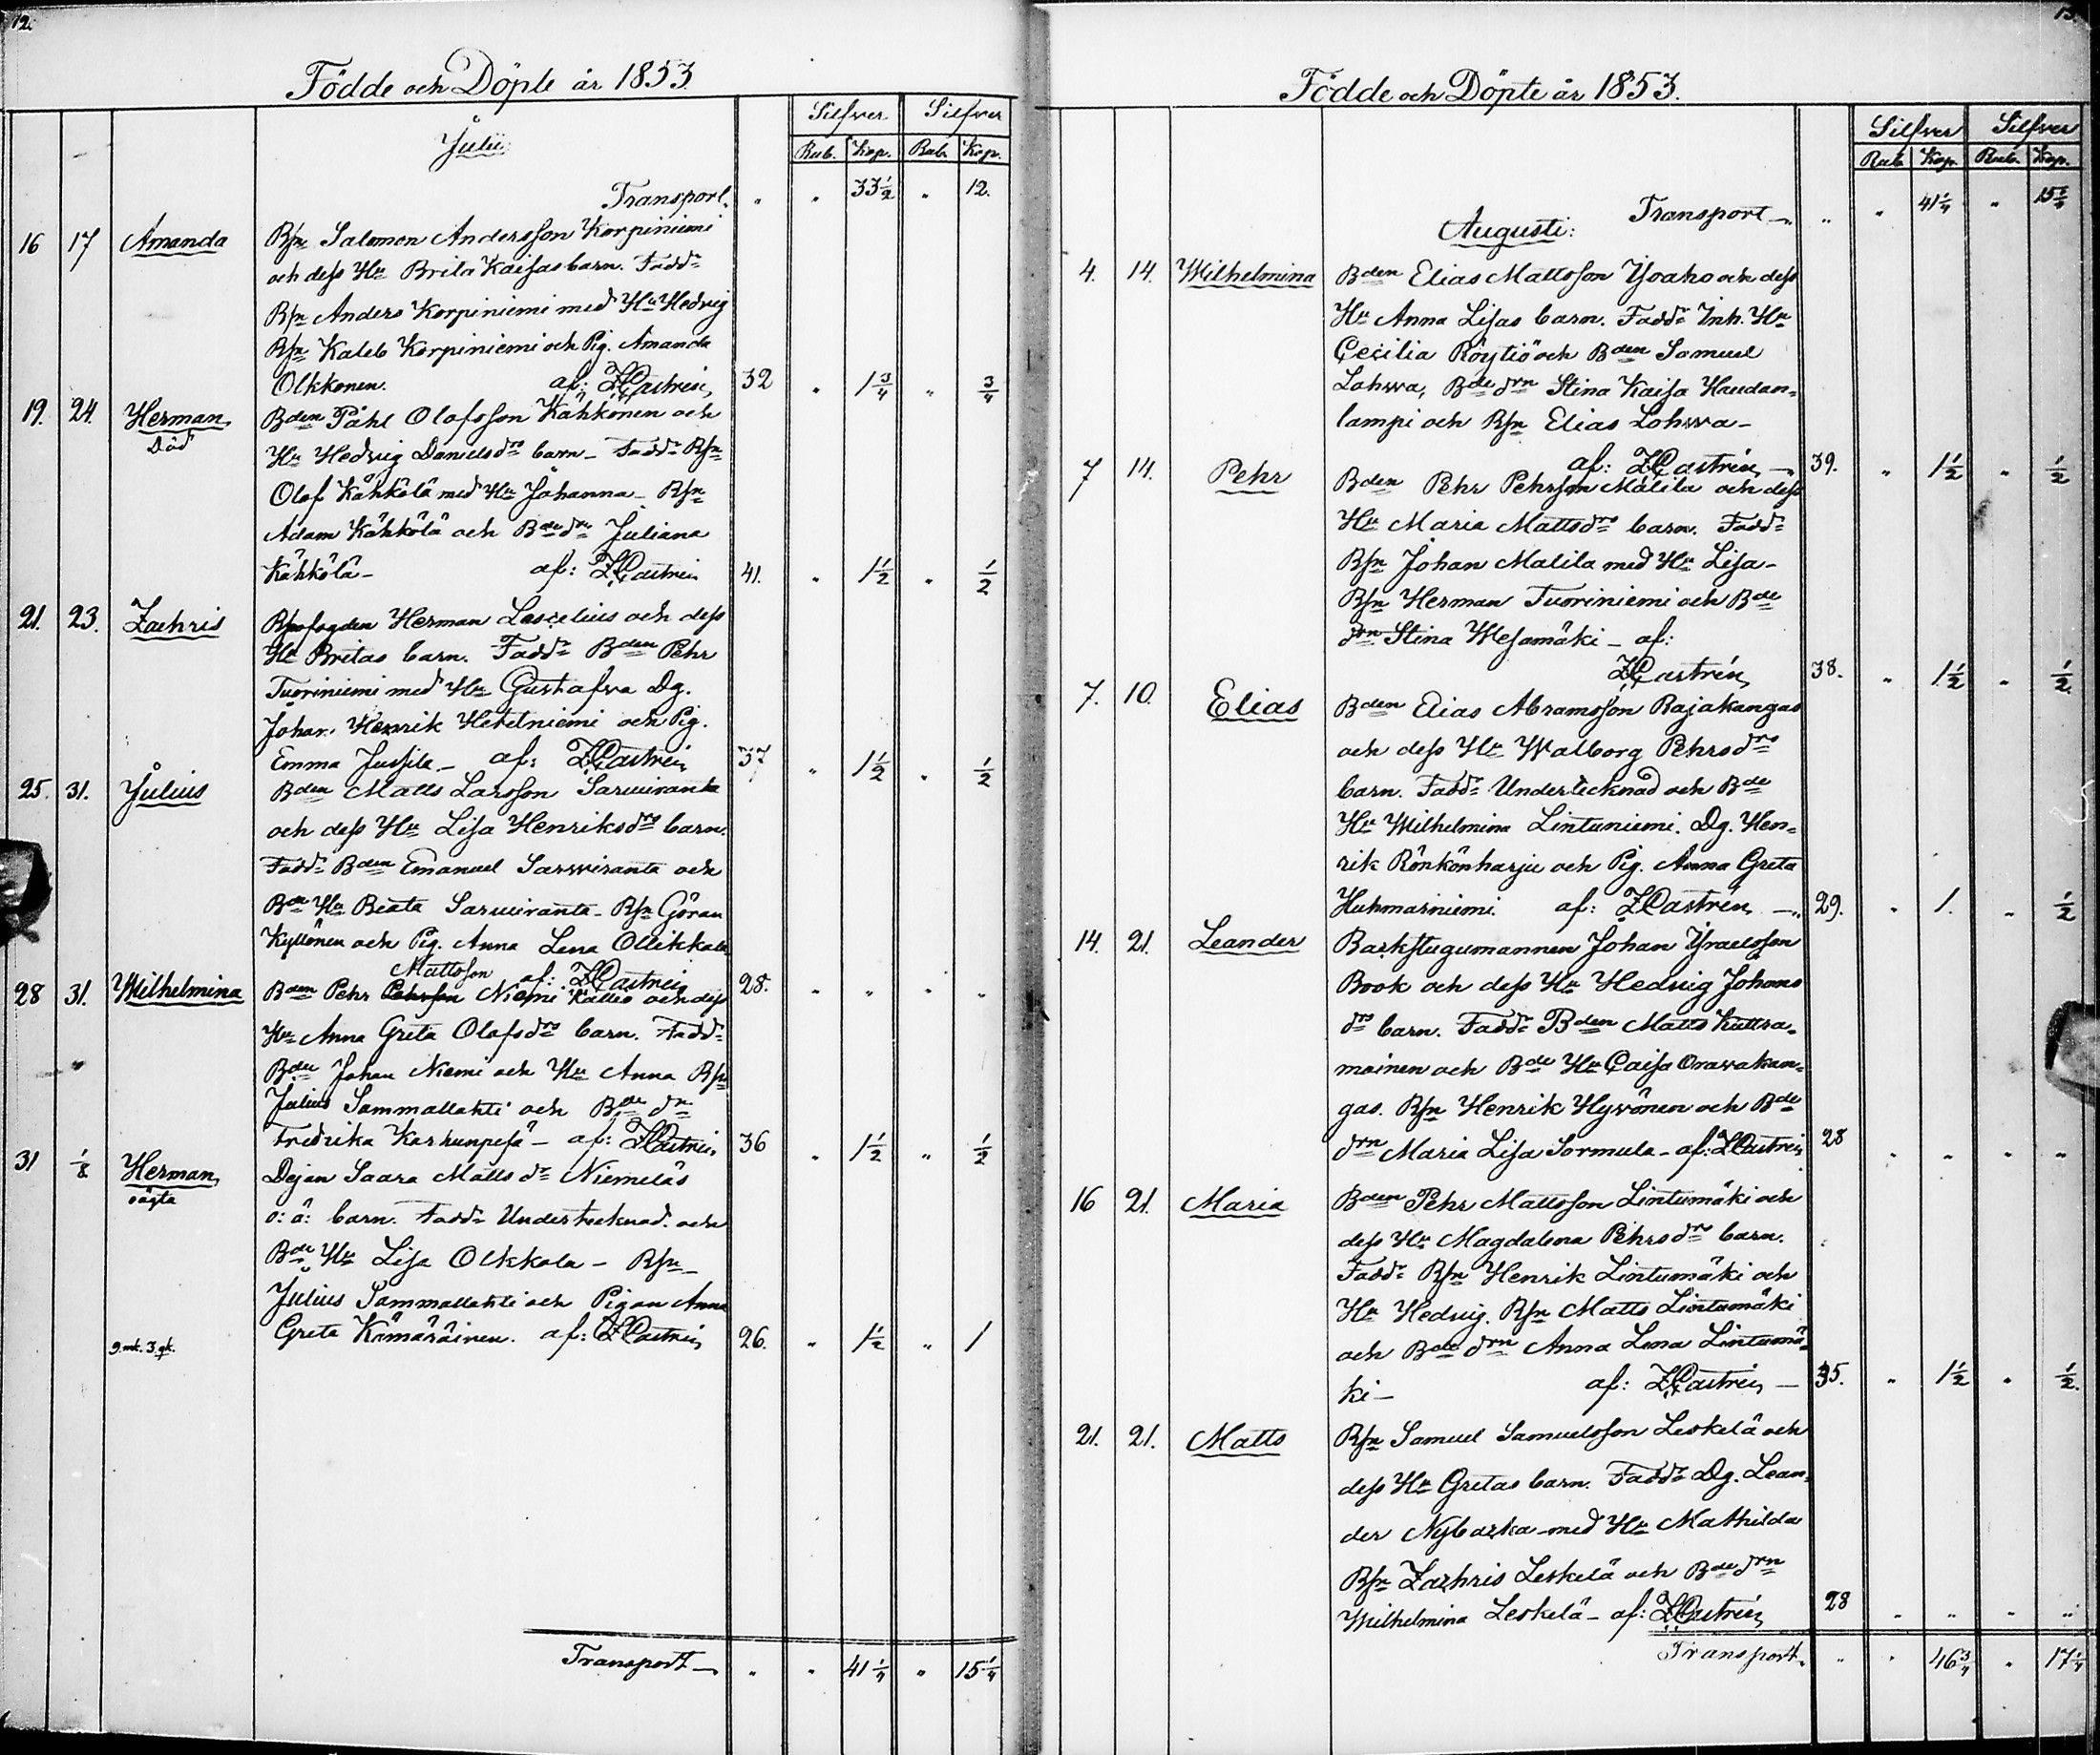 12.
Födde och Döpte år 1853.
Silfver Silfver
Rub. Kop. Rub. Kop.
Julii
Transport. " " 33 1/2 " 12.
16 17 Amanda Bfn Salomon Andersson Korpiniemi
och dess Hu Brita Kaisas barn. Faddr
Bfn Anders Korpiniemi med Hu Hedvig
Bfn Kaleb Korpiniemi och Pig. Amanda
Olkkonen. af: ZCastrén 32 " 1 3/4 " 3/4
19. 24. Herman Bden Påhl Olofsson Kähkönen och
Död Hu Hedvig Danielsdr barn – Faddr Bfn
Olof Kähkölä med Hu Johanna – Bfn
Adam Kähkölä och Bde dr Juliana
Kähkölä – af: ZCastrén 41. " 1 1/2 " 1/2
21. 23. Zachris Herman Lescelius och dess
Hu Britas barn. Faddr Bden Pehr
Tuoriniemi med Hu Gustafva Dg.
Johan Henrik Hetetniemi och Pig.
Emma Jussila – af: ZCastrén 37 " 1 1/2 " 1/2
25. 31. Julius Bden Matts Larsson Sarwiranta
och dess Hu Lisa Henriksdrs barn.
Faddr Bden Emanuel Sarwiranta och
Bde Hu Beata Sarwiranta – Bfn Göran
Kyllönen och Pig. Anna Lena Ollikkala
af: ZCastrén 28. " " " "
Mattsson
28 31. Wilhelmina Bden Pehr Pehrsson Niemi Kallio och dess
Hu Anna Greta Olofsdrs barn. Faddr
Bden Johan Niemi och Hu Anna Bfn
Julius Sammallahti och Bde dr
Fredrika Karhunpesä – af: ZCastrén 36 " 1 1/2 " 1/2
31 1/8 Herman Dejan Saara Mattsdr Niemeläs
oägta o: ä: barn. Faddr Undertecknad och
Bde Hu Lisa Olkkola – Bfn
Julius Sammallahti och Pigan Anna
Greta Kämäräinen. af: ZCastrén 26. " 1 1/2 " 1
9. mk. 3 qk.
Transport – " " 41 1/4 " 15 1/4
13.
Födde och Döpte år 1853.
Silfver Silfver
Rub. Kop. Rub. Kop.
Transport – " " 41 1/4 " 15 1/4
Augusti:
4. 14. Wilhelmina Bden Elias Mattsson Isoaho och dess
Hu Anna Lisas barn. Faddr Inh. Hu
Cecilia Röytiö och Bden Samuel
Lohwa, Bde drn Stina Kaisa Haudan-
lampi och Bfn Elias Lohwa –
af: ZCastrén – 39. " 1 1/2 " 1/2
7 14. Pehr Bden Pehr Pehrsson Malila och dess
Hu Maria Mattsdrs barn. Faddr
Bfn Johan Malila med Hu Lisa –
Bfn Herman Tuoriniemi och Bde
drn Stina Wesamäki – af:
ZCastrén 38. " 1 1/2 " 1/2
7. 10. Elias Bden Elias Abramsson Rajakangas
och dess Hu Walborg Pehrsdrs
barn. Faddr Undertecknad och Bde
Hu Wilhelmina Lintuniemi. Dg. Hen-
rik Rönkönharju och Pig. Anna Greta
Huhmarniemi. af: ZCastrén – 29. " 1. " 1/2
14. 21. Leander Backstugumannen Johan Israelsson
Book och dess Hu Hedvig Johans
drs barn. Faddr Bden Matts Kuttra-
moinen och Bde Hu Caisa Orawakan-
gas. Bfn Henrik Hyvönen och Bde
drn Maria Lisa Sormula – af: ZCastrén 28 " " " "
16 21. Maria Bden Pehr Mattsson Lintumäki och
dess Hu Magdalena Pehrsdrs barn.
Faddr Bfn Henrik Lintumäki och
Hu Hedvig. Bfn Matts Lintumäki
och Bde drn Anna Lena Lintumä-
ki – af: ZCastrén – 35. " 1 1/2 " 1/2
21. 21. Matts Bfn Samuel Samuelsson Leskelä och
dess Hu Gretas barn. Faddr Dg. Lean-
der Nybacka med Hu Mathilda
Bfn Zachris Leskelä och Bde drn
Wilhelmina Leskelä – af: ZCastrén 28 " " " "
Transport. " " 46 3/4 " 17 1/4